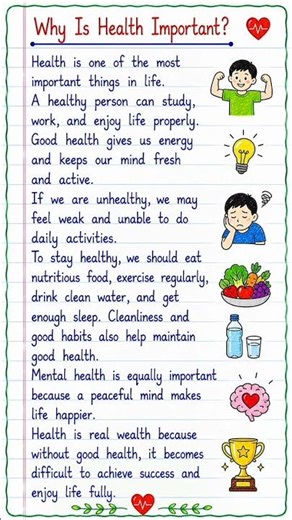 Why Is Health Important?
Health is one of the most
important things in life.
A healthy person can study,
work, and enjoy life properly.
Good health gives us energy
and keeps our mind fresh
and active.
If we are unhealthy, we may
feel weak and unable to do
daily activities.
To stay healthy, we should eat
nutritious food, exercise regularly,
drink clean water, and get
enough sleep. Cleanliness and
good habits also help maintain
good health.
Mental health is equally important
because a peaceful mind makes
life happier.
Health is real wealth because
without good health, it becomes
difficult to achieve success and
enjoy life fully.